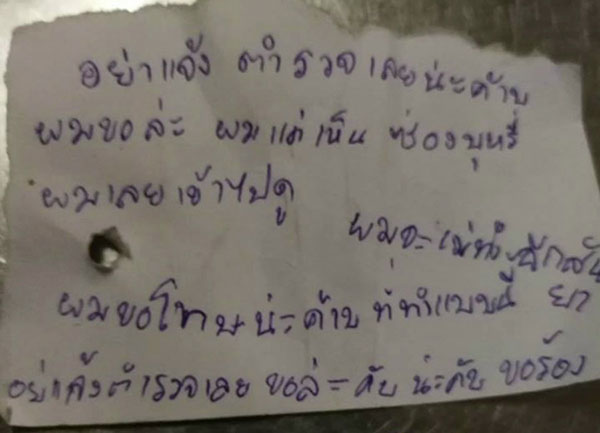 อย่าแจ้ง ตำรวจเลยน่ะค้าบ
ผมขอล่ะ ผมแค่เห็น ซ่องบุหรี่
ผมเลยเข้าไปดู
ผมจะไม่ทำอีก
ผมขอโทษน่ะค้าบ ที่ทำแบบนี้
อย่แจ้งตำรวจเลย ขอล่ะคับ น่ะคับ ขอร้อง